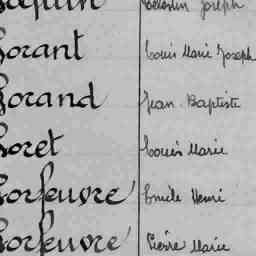 Célestin Joseph
Lorant Louis Marie Joseph
Lorand Jean Baptiste
Loret Louis Marie
Lorfeuvre Emile Henri
Lorfeuvre Pierre Marie